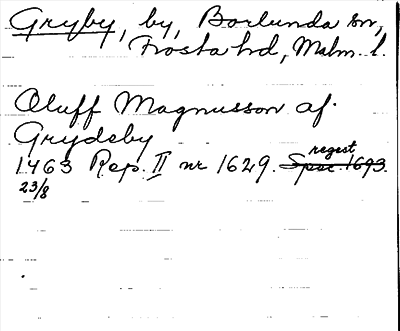 Gryby, by, Borlunda sn,
Frosta hd, Malm. l.
Oluff Magnusson af
Grydeby
1463 Rep. II nr 1629. regest
23/8